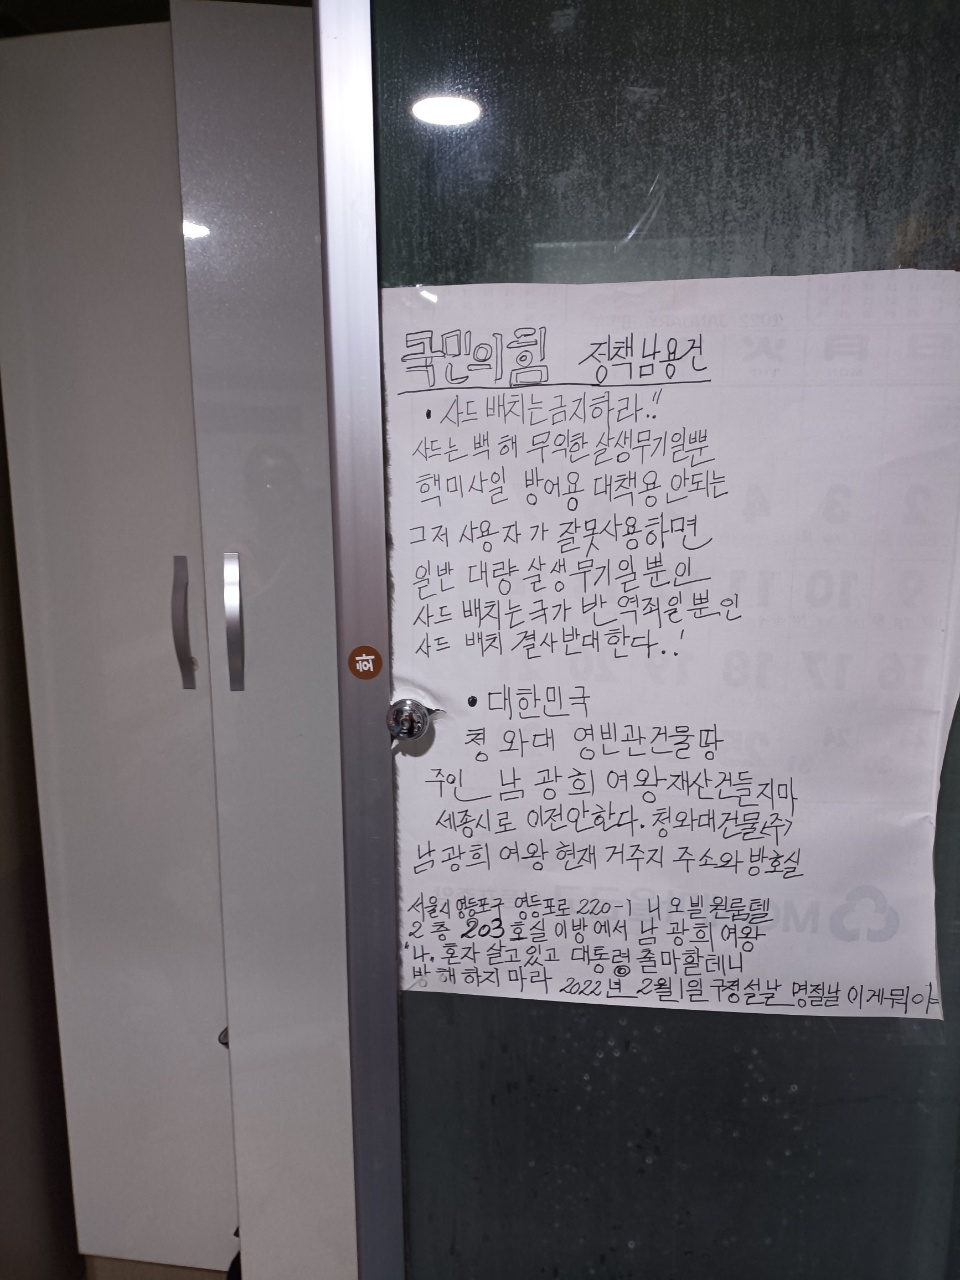 국민의힘 정책남용건
• 사드 배치는금지하라!!
사드는 백 해 무익한 살생무기일뿐
핵미사일 방어용 대책용 안되는
그저 사용자 가 잘못사용하면
일반 대량 살생 무기일 뿐인
사드 배치는국가 반 역죄일 뿐인
사드 배치 결사반대한다..!
• 대한민국
청 와대 영빈관건물땅
주인 남 광희 여왕재산건들지마
세종시로 이전안한다. 청와대건물(주)
남광희 여왕 현재 거주지 주소와 방호실
서울시영등포구 영등포로 220-1 나오빌원룸텔
2 층 203 호실 이방에서 남 광희 여왕
나. 혼자 살고있고 대통령 출마할테니
방해하지 마라 2022년 2월 1일 구정설날 명절날 이게뭐야
화